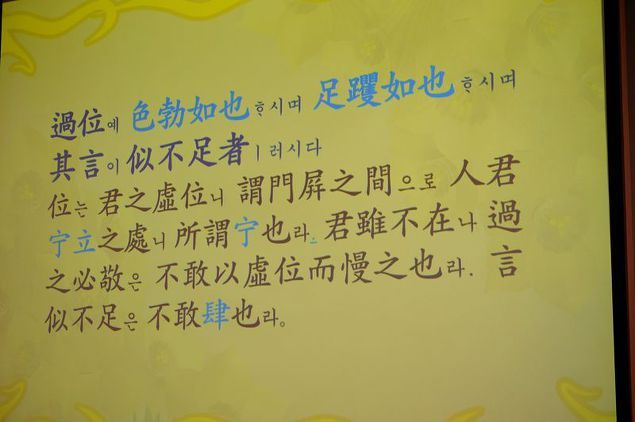 過位에 色勃如也ᄒᆞ시며 足躩如也ᄒᆞ시며
其言이 似不足者ㅣ러시다
位는 君之虛位니 謂門屛之間으로 人君
宁立之處니 所謂宁也라. 君雖不在나 過
之必敬은 不敢以虛位而慢之也라. 言
似不足은 不敢肆也라。